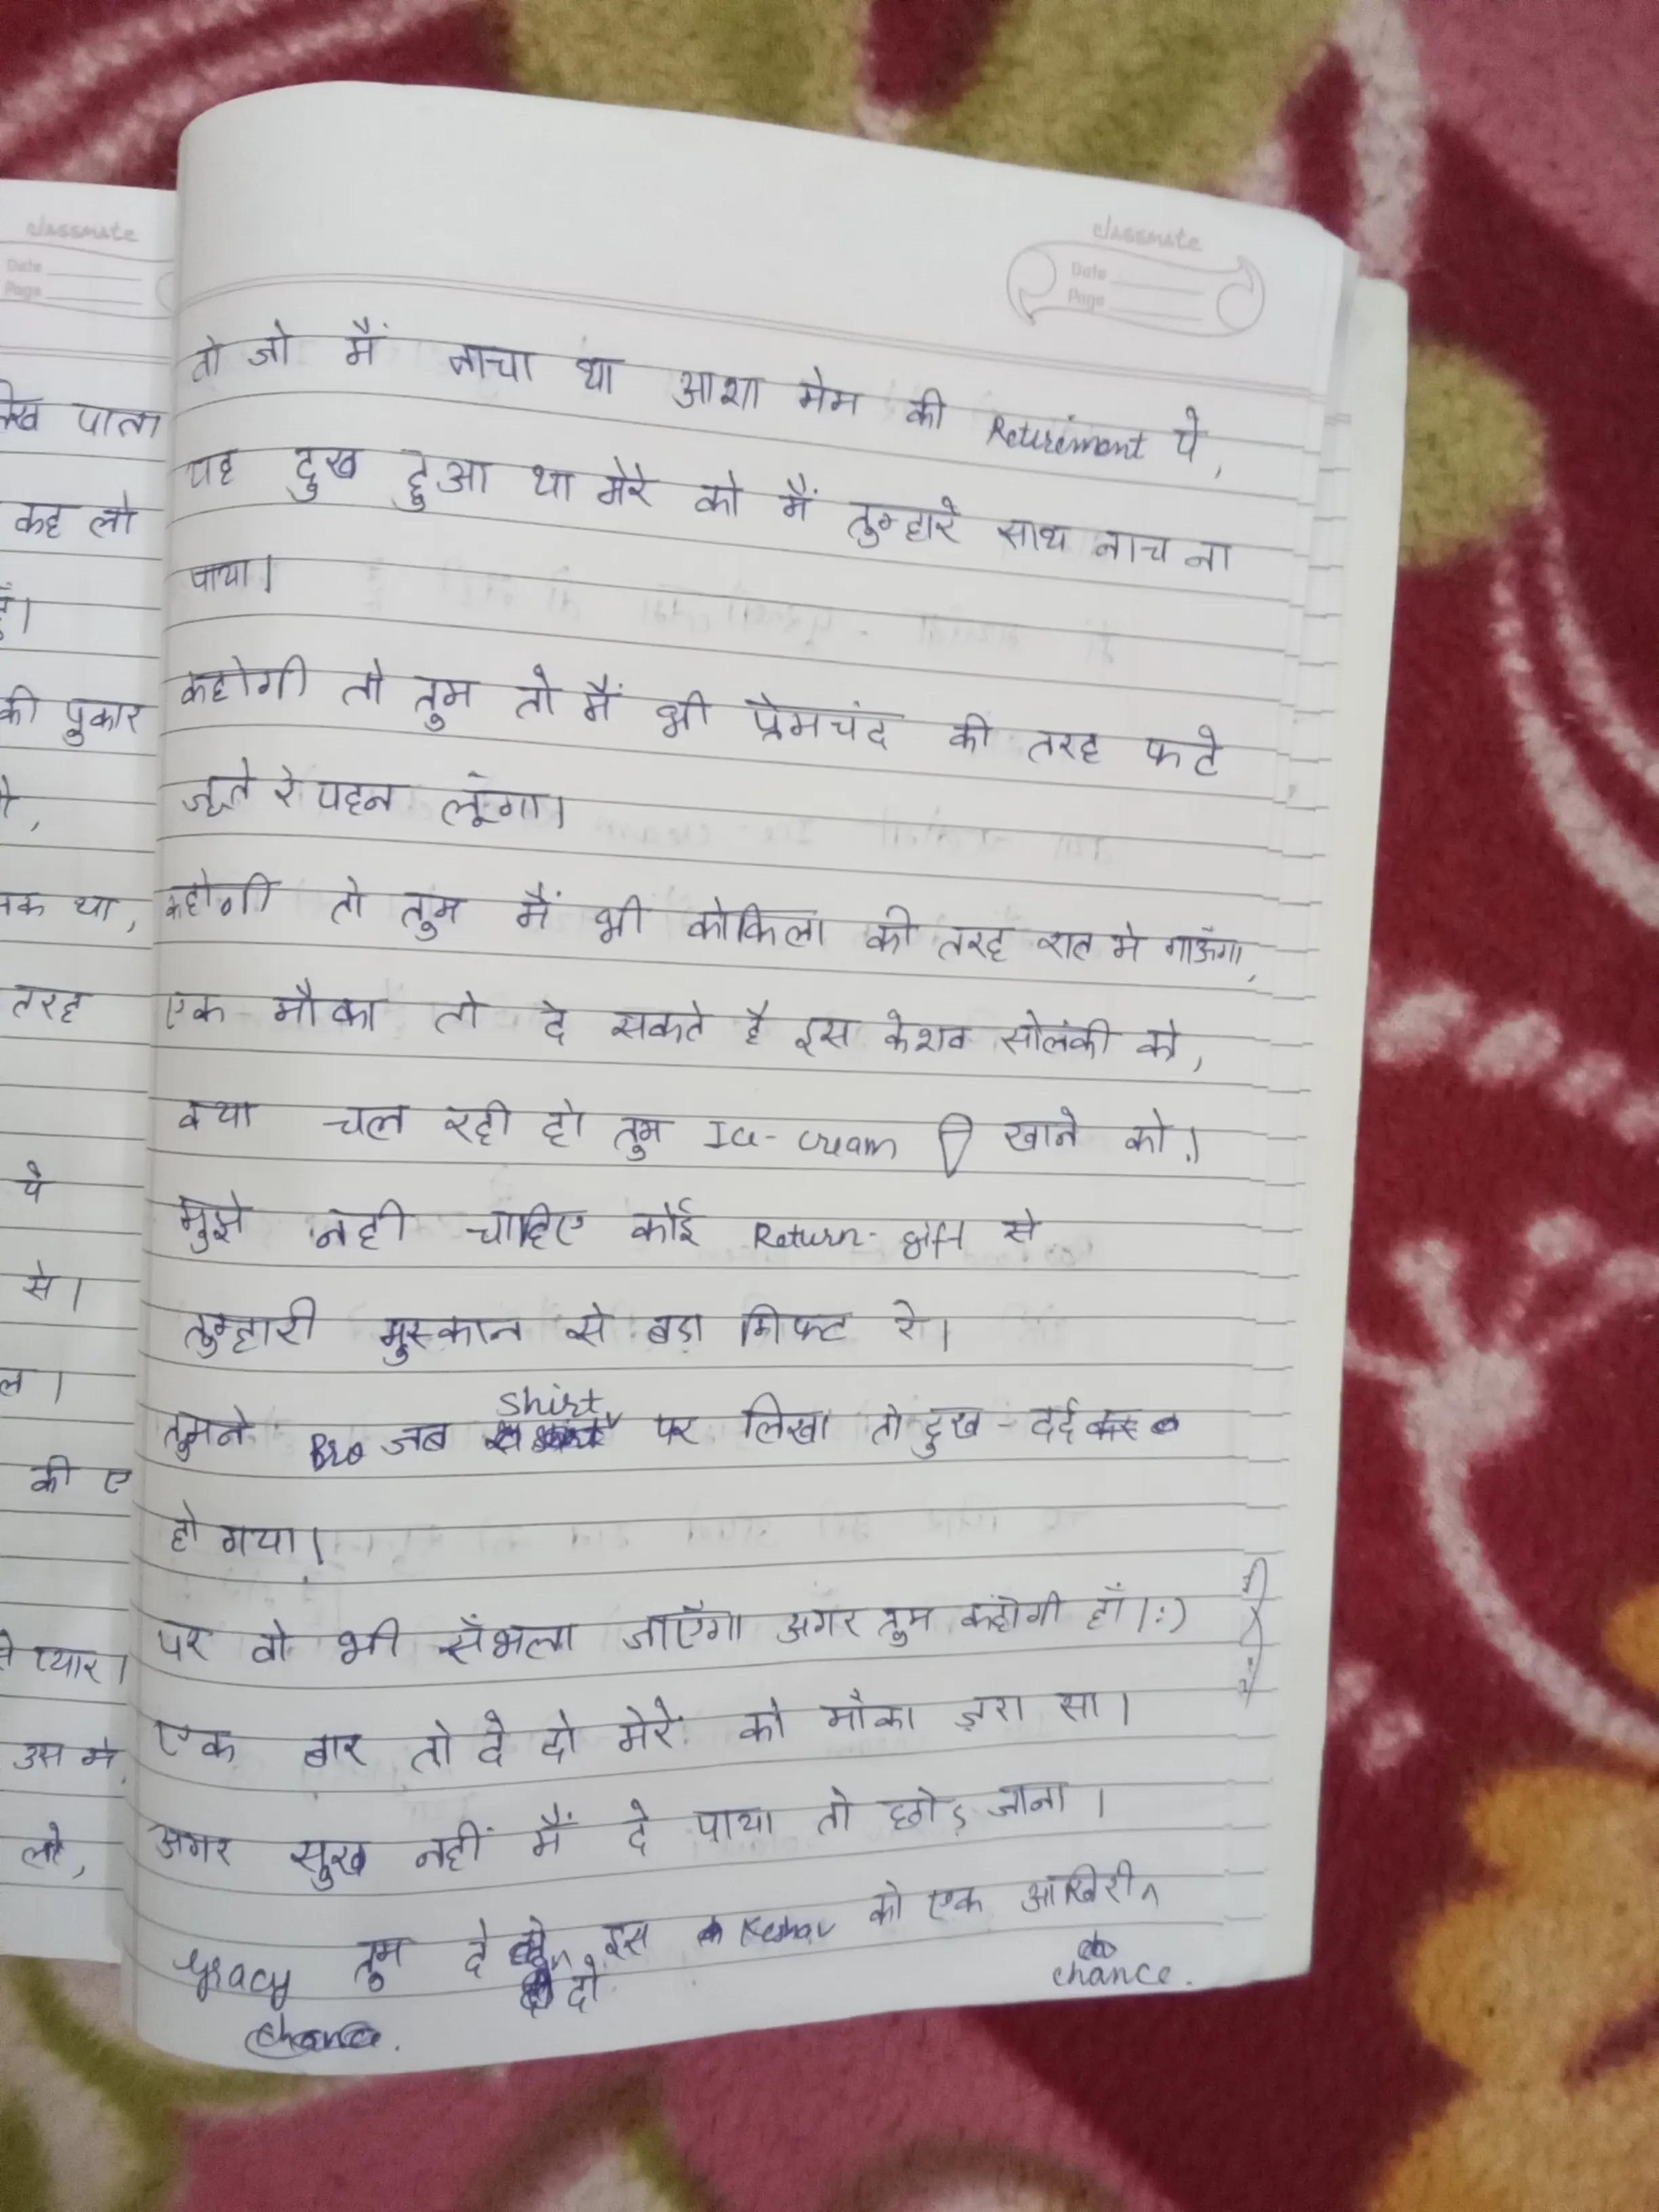 classmate
Date
Page
लेख पाता
कह लो
हूँ।
की पुकार
था,
तरह
पे
से।
ल।
की ए
प्यार।
उस मे
classmate
Date
Page
तो जो मैं नाचा था आशा मेम की Retirement पे,
यह दुख हुआ था मेरे को मैं तुम्हारे साथ नाच ना
पाया।
कहोगी तो तुम तो मैं भी प्रेमचंद की तरह फटे
जूते रे पहन लूंगा।
कहोगी तो तुम मैं भी कोकिला की तरह रात मे गाऊँगा,
एक मौका तो दे सकते है इस केशव सोलंकी को,
क्या चल रही हो तुम Ice-cream खाने को।
मुझे नही चाहिए कोई Return-gift से
तुम्हारी मुस्कान से बड़ा गिफ्ट रे।
तुमने Bro जब Shirt पर लिखा तो दुख-दर्द
हो गया।
पर वो भी सँभला जाएँगा अगर तुम कहोगी हाँ।:)
एक बार तो दे दो मेरे को मौका ज़रा सा।
अगर सुख नहीं मैं दे पाया तो छोड़ जाना।
Gracy तुम दे दो इस Keshav को एक आखिरी
chance.